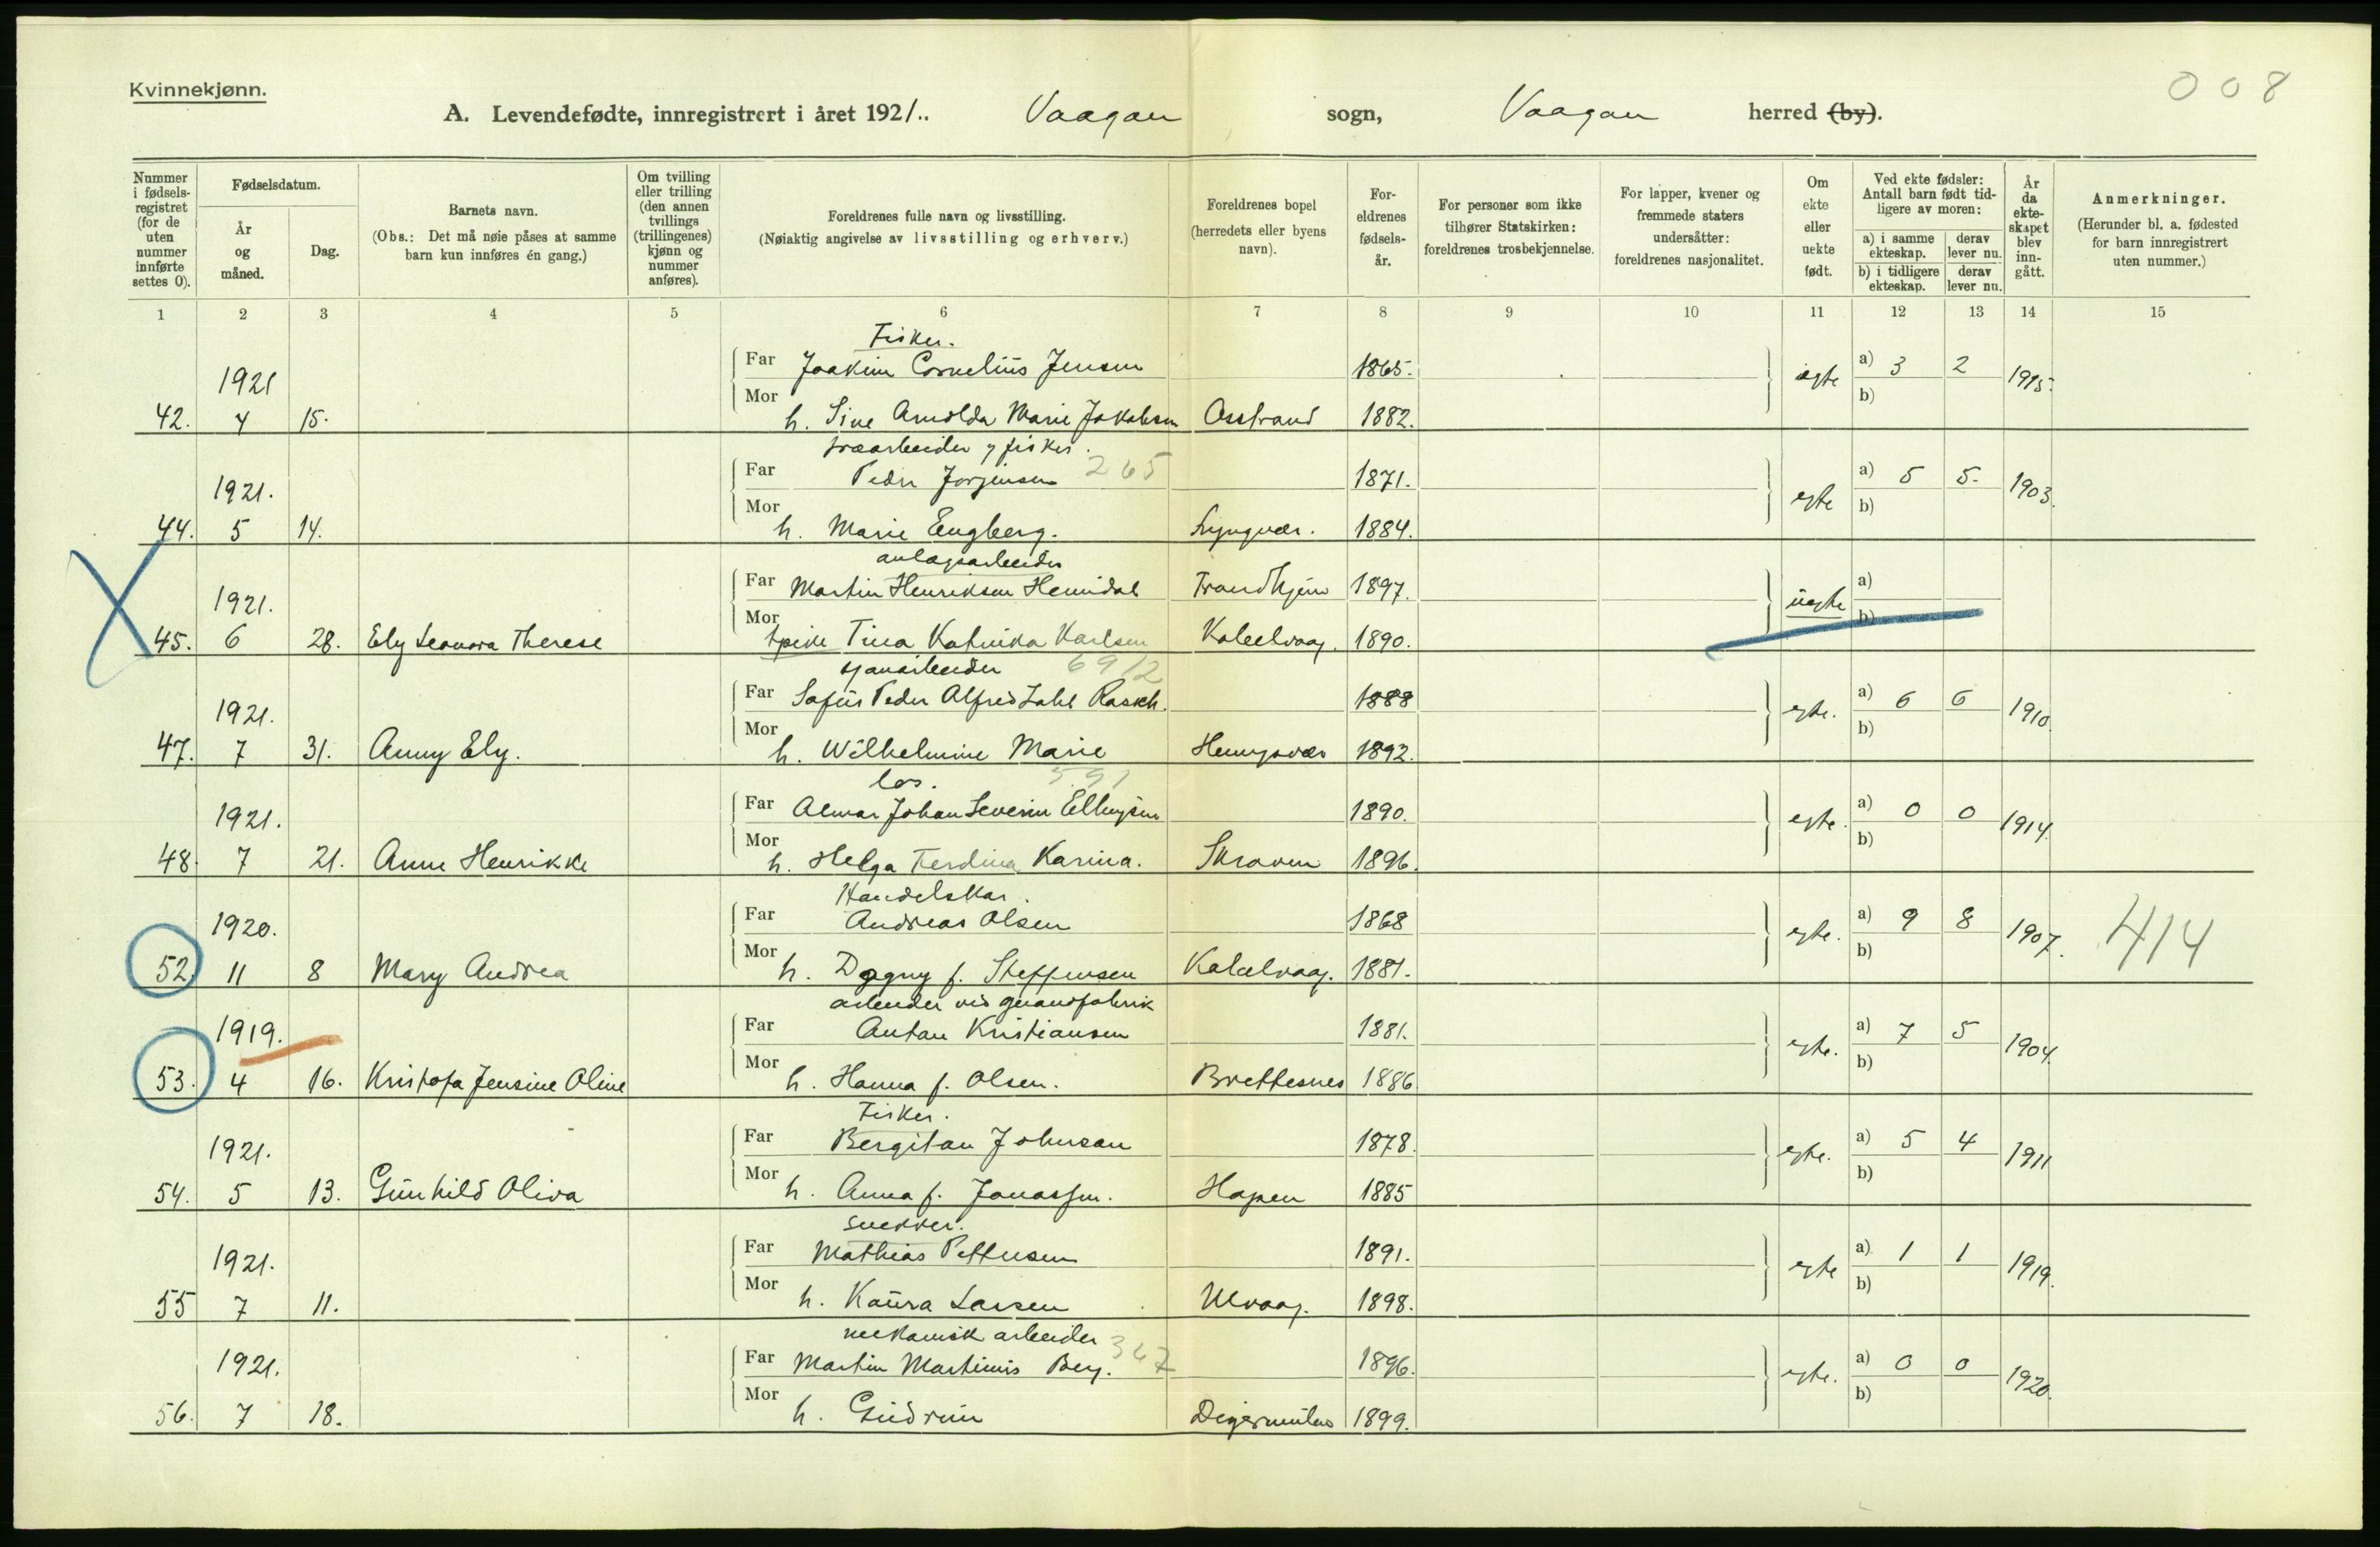 Kvinnekjønn.
008
A. Levendefødte, innregistrert i året 1921.. Vaagan sogn, Vaagan herred (by).
Nummer i fødselsregistret (for de uten nummer innførte settes 0).
Fødselsdatum.
År og måned.
Dag.
Barnets navn.
(Obs.: Det må nøie påses at samme barn kun innføres én gang.)
Om tvilling eller trilling (den annen tvillings (trillingenes) kjønn og nummer anføres).
Foreldrenes fulle navn og livsstilling.
(Nøiaktig angivelse av livsstilling og erhverv.)
Foreldrenes bopel (herredets eller byens navn).
Foreldrenes fødselsår.
For personer som ikke tilhører Statskirken: foreldrenes trosbekjennelse.
For lapper, kvener og fremmede staters undersåtter: foreldrenes nasjonalitet.
Om ekte eller uekte født.
Ved ekte fødsler: Antall barn født tidligere av moren:
a) i samme ekteskap. derav lever nu.
b) i tidligere ekteskap. derav lever nu.
År da ekteskapet blev inngått.
Anmerkninger.
(Herunder bl. a. fødested for barn innregistrert uten nummer.)
1 2 3 4 5 6 7 8 9 10 11 12 13 14 15
Fisker.
1921 Far Joakim Cornelius Jensen 1865. egte a) 3 2 1915.
42. 4 15. Mor h. Sine Arnolda Marie Jakobsen Osstrand 1882. b)
træarbeider & fisker.
1921. Far Peder Jorginsen 265 1871. egte a) 5 5. 1903.
44. 5 14. Mor h. Marie Engberg. Lyngvær. 1884. b)
anlægsarbeider
1921. Far Martin Henriksen Hemidal Trondhjem 1897. uegte a)
45. 6 28. Ely Leonora Therese Mor Tina Katinka Karlsen Kabelvaag. 1890. b)
6912
1921. Far Sofus Peder Alfred Zahl Rasch. 1888 egte. a) 6 6 1910.
47. 7 31. Anny Ely. Mor h. Wilhelmine Marie Henningsvær 1892. b)
los. 591
1921. Far Almar Johan Severin Ellingsen 1890. egte. a) 0 0 1914.
48. 7 21. Anne Henrikke Mor h. Helga Ferdina Karina. Skroven 1896. b)
Handelskar.
1920. Far Andreas Olsen 1868 egte. a) 9 8 1907. 414
52. 11 8 Mary Andrea Mor h. Dagny f. Steffensen Kabelvaag. 1881. b)
arbeider ved guanofabrik
1919. Far Anton Kristiansen 1881. egte. a) 7 5 1904.
53. 4 16. Kristofa Jensine Oline Mor h. Hanna f. Olsen. Brettesnes 1886 b)
Fisker.
1921. Far Bergitan Johnsan 1878. egte. a) 5 4 1911
54. 5 13. Gunhild Oliva Mor h. Anna f. Jonassen. Hopen 1885 b)
snekker.
1921. Far Mathias Pettersen 1891. egte a) 1 1 1919.
55 7 11. Mor h. Kaura Larsen Ulvaag. 1898. b)
mekanisk arbeider
1921. Far Martin Martinius Berg. 347 1896. egte. a) 0 0 1920.
56. 7 18. Mor h. Gudrun Digermulen 1899. b)